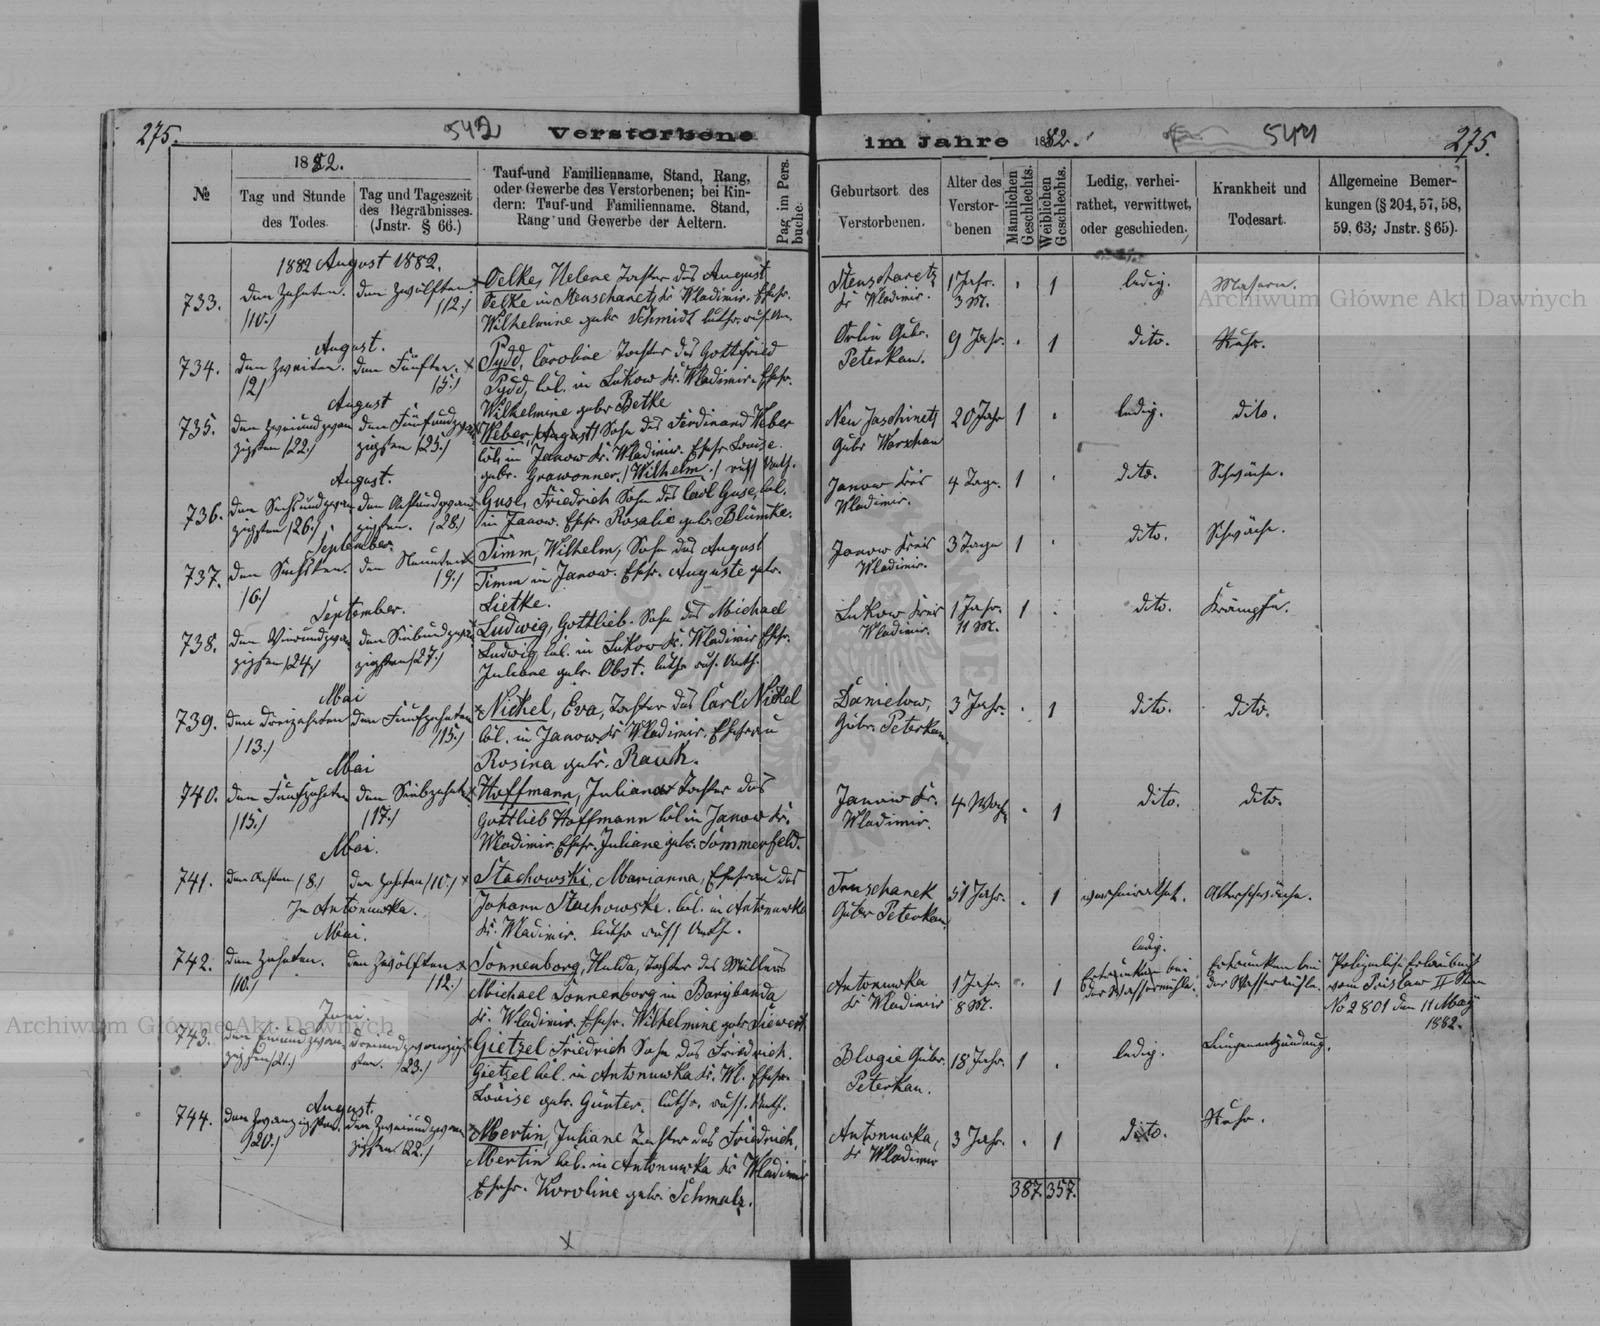 275.
542
Verstorbene
im Jahre 1882.
544
275.
№
1882.
Tag und Stunde
des Todes.
Tag und Tageszeit
des Begräbnisses.
(Jnstr. § 66.)
Tauf-und Familienname, Stand, Rang,
oder Gewerbe des Verstorbenen; bei Kin-
dern: Tauf-und Familienname. Stand,
Rang und Gewerbe der Aeltern.
Pag. im Pers.
buche.
Geburtsort des
Verstorbenen.
Alter des
Verstor-
benen
Männlichen
Geschlechts.
Weiblichen
Geschlechts.
Ledig, verhei-
rathet, verwittwet,
oder geschieden,
Krankheit und
Todesart.
Allgemeine Bemer-
kungen (§ 204, 57, 58,
59, 63; Jnstr. § 65).
1882 August 1882.
733. den Zehnten. /10./ den Zwölften. /12./
Oelke, Helene Tochter des August
Oelke in Stenscharetz Kr Wladimir. Ehefr.
Wilhelmine gebr Schmidt luthr. russ. Un.
Stenscharetz
Kr Wladimir.
1 Jahr.
3 M.
1
ledig.
Masern.
Archiwum Główne Akt Dawnych
August.
734. den Zweiten. /2/ den Fünften. /5./
Pydd, Caroline Tochter des Gottfried
Pydd, Col. in Lukow Kr. Wladimir. Ehefr.
Wilhelmine gebr Betke
Orlin Gubr.
Peterkau.
9 Jahr.
1
dito.
Ruhr.
August
735. den zweiundzwan
zigsten /22./ den Fünfundzwan
zigsten /25./
Weber, /August/ Sohn des Ferdinand Weber
Col. in Janow Kr. Wladimir. Ehefr Louise.
gebr. Grawonner. /Wilhelm./ russ Unth.
Neu Jaschinetz
Gubr Warschau
20 Jahr
1
ledig.
dito.
August.
736. den Sechsundzwan
zigsten /26./ den Achtundzwan
zigsten. /28./
Guse, Friedrich Sohn des Carl Guse, Col.
in Janow. Ehefr. Rosalie gebr. Blümke.
Janow Kreis
Wladimir.
4 Tage.
1
dito.
Schwäche.
September
737. den Sechsten. /6./ den Neunten /9./
Timm, Wilhelm, Sohn des August
Timm in Janow. Ehefr. Auguste gebr.
Lietke.
Janow Kreis
Wladimir.
3 Tage
1
dito.
Schwäche.
September.
738. den Vierundzwan
zigsten /24./ den Siebundzwan
zigsten /27./
Ludwig, Gottlieb. Sohn des Michael
Ludwig Col. in Lukow Kr. Wladimir Ehefr.
Juliane gebr. Obst. luthr rus. Unth.
Lukow Kreis
Wladimir.
1 Jahr.
11 M.
1
dito.
Krämpfe.
Mai
739. den Dreizehnten /13./ den Fünfzehnten /15./
Nickel, Eva, Tochter des Carl Nickel
Col. in Janow Kr Wladimir. Ehefrau
Rosina gebr. Rauh.
Danielow,
Gubr. Peterkau.
3 Jahr.
1
dito.
dito.
Mai
740. den Fünfzehnten /15./ den Siebzehnten /17./
Hoffmann, Juliana Tochter des
Gottlieb Hoffmann Col in Janow Kr.
Wladimir. Ehefr. Juliane gebr. Sommerfeld.
Janow Kr.
Wladimir.
4 Woch.
1
dito.
dito.
Mai.
741. den Achten /8./ den Zehnten /10./
In Antonuwka.
Stachowski, Marianna, Ehefrau des
Johann Stachowski. Col. in Antonuwka
Kr. Wladimir. luthr russ Unth.
Truschanek
Gubr Peterkau
51 Jahr.
1
verheirathet.
Altersschwäche.
Mai.
742. den Zehnten. /10./ den Zwölften /12./
Sonnenborg, Hulda, Tochter des Müllers
Michael Sonnenborg in Barybanda
Kr. Wladimir. Ehefr. Wilhelmine gebr Siewert
Antonuwka
Kr Wladimir
1 Jahr.
8 M.
1
ledig.
Ertrunken bei
der Wassermühle.
Ertrunken bei
der Wassermühle.
Polizeilich Erlaubniß
vom Pristaw II Stan
No 2801 den 11 May
1882.
Archiwum Główne Akt Dawnych
Juni.
743. den Einundzwan
zigsten /21./ Dreiundzwanzig
sten. /23./
Gietzel Friedrich Sohn des Friedrich.
Gietzel Col. in Antonuwka Kr. Wl. Ehefr.
Louise gebr. Günter. luthr. russ. Unth.
Blogie Gubr.
Peterkau.
18 Jahr.
1
ledig.
Lungenentzündung.
August.
744. den Zwanzigsten. /20./ den Zweiundzwan
zigsten /22./
Mertin, Juliane Tochter des Friedrich,
Mertin Col. in Antonuwka Kr Wladimir
Ehefr. Karoline gebr. Schmalz.
Antonuwka,
Kr Wladimir
3 Jahr.
1
dito.
Ruhr.
387. 357.